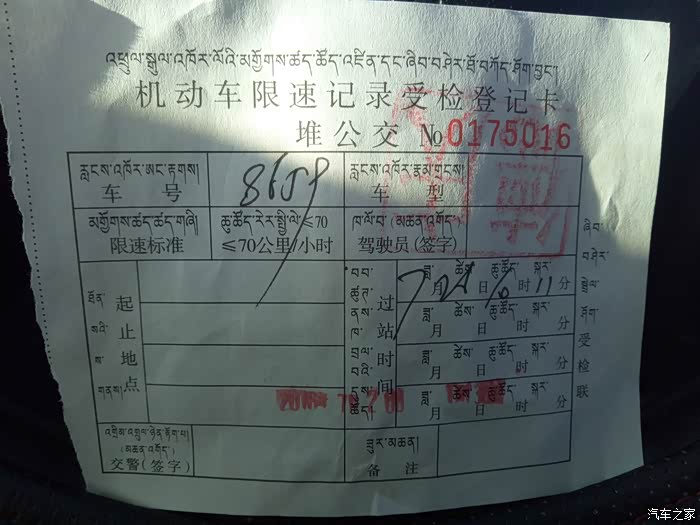 འཕྲུལ་སྒུལ་འཁོར་ལོའི་མགྱོགས་ཚད་ཚོད་འཛིན་དང་ཞིབ་བཤེར་ཐོ་བཀོད་ཤོག་བྱང་།
机动车限速记录受检登记卡
堆公交 №0175016
རླངས་འཁོར་ཨང་རྟགས།
车 号
8659
རླངས་འཁོར་རྣམ་གྲངས།
车 型
མགྱོགས་ཚད་ཚད་གཞི།
限速标准
ཆུ་ཚོད་རེར་སྤྱི་ལེ་≤70
≤70公里/小时
ཁ་ལོ་བ་(མཚན་འགོད་)
驾驶员(签字)
起止地点
过站时间
ཟླ་ ཚེས་ ཆུ་ཚོད་ སྐར་
月 日 时 11 分
ཟླ་ ཚེས་ ཆུ་ཚོད་ སྐར་
月 日 时 分
ཟླ་ ཚེས་ ཆུ་ཚོད་ སྐར་
月 日 时 分
ཟླ་ ཚེས་ ཆུ་ཚོད་ སྐར་
月 日 时 分
ཞིབ་བཤེར་སྦྲེལ་ཤོག
受检联
(མཚན་འགོད་)
交警(签字)
ཟུར་མཆན།
备 注
汽车之家